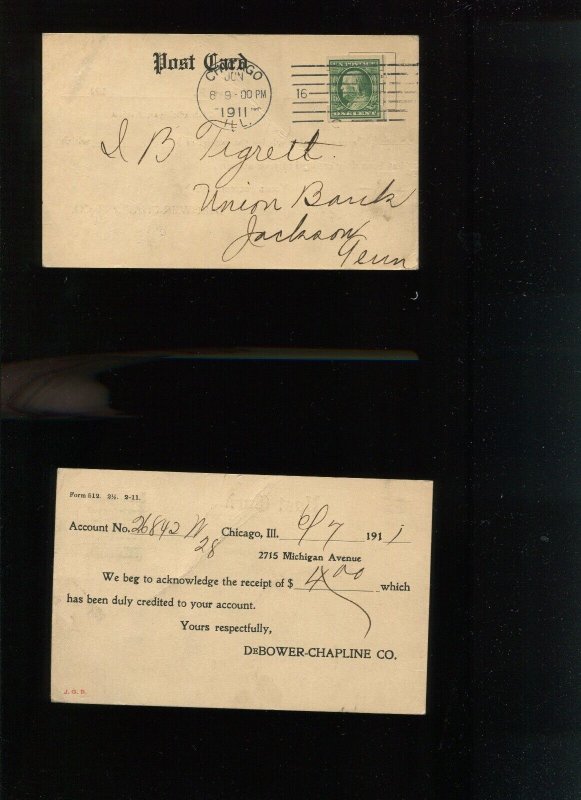 Post Card
CHICAGO
JUN
8 9-00 PM
1911
ILL.
16
ONE CENT
I B Tigrett
Union Bank
Jackson
Tenn
Form 512. 2½. 2-11.
Account No. 26842 N Chicago, Ill. 6/7 1911
28
2715 Michigan Avenue
We beg to acknowledge the receipt of $ 4 00 which
has been duly credited to your account.
Yours respectfully,
DEBOWER-CHAPLINE CO.
J. G. D.